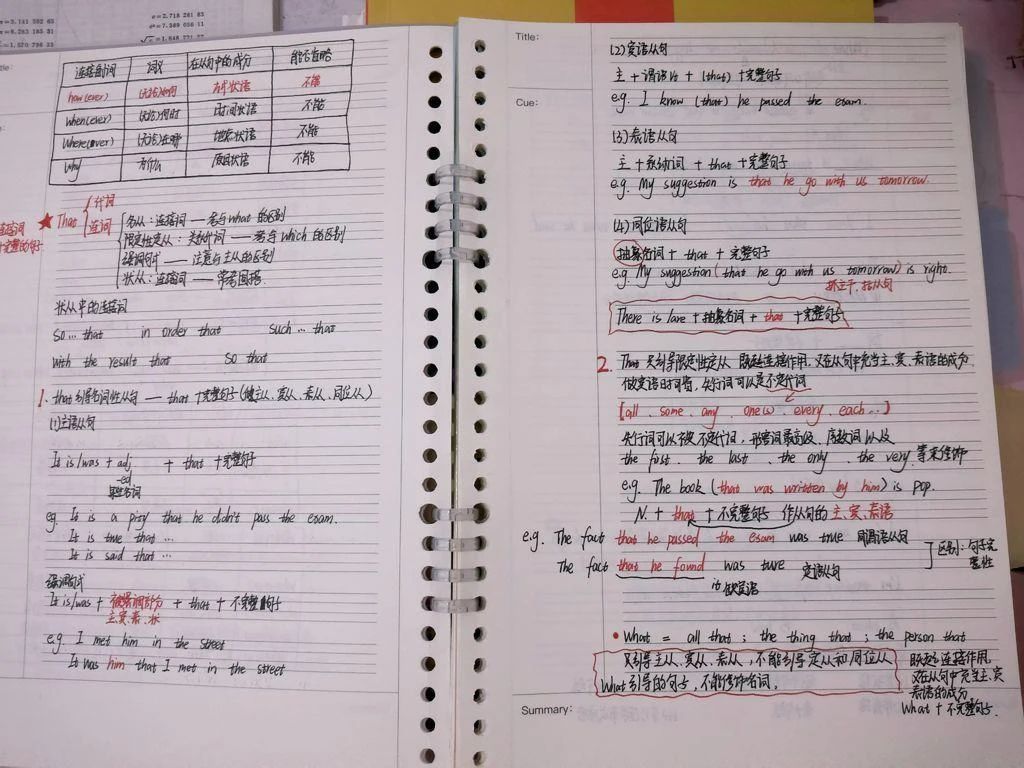 π=3.141 592 65
e=2.718 281 83
e²=7.389 056 11
连接副词 词义 在从句中的成分 能否省略
how(ever) (无论)如何 方式状语 不能
when(ever) (无论)何时 时间状语 不能
where(ever) (无论)在哪 地点状语 不能
why 为什么 原因状语 不能
★ That
代词
连词
名从：连接词 — 考与what的区别
限定性定从：关系代词 — 考与which的区别
强调句式 — 注意与主从的区别
状从：连接词 — 常考固搭.
连接词
+完整的句子
状从中的连接词
so … that in order that such … that
with the result that so that
1. that引导名词性从句 — that +完整句子(主从、宾从、表从、同位从)
(1)主语从句
It is/was + adj + that +完整句子
-ed
单数名词
eg. It is a pity that he didn't pass the exam.
It is true that …
It is said that …
强调句式
It is/was + 被强调部分 + that + 不完整的句子
主、宾、表、状
e.g I met him in the street
It was him that I met in the street
Title:
Cue:
(2)宾语从句
主 + 谓语vt + (that) +完整句子
e.g. I know (that) he passed the exam.
(3)表语从句
主 +系动词 + that +完整句子
e.g. My suggestion is that he go with us tomorrow.
(4)同位语从句
抽象名词 + that + 完整句子
e.g. My suggestion (that he go with us tomorrow) is right.
抓主干, 括从句
There is /are +抽象名词 + that +完整句子
2. That 只引导限定性定从 既起连接作用, 又在从句中充当主、宾、表语的成分
做宾语时可省, 先行词可以是不定代词
[all、some、any、one(s)、every、each…]
先行词可以被不定代词, 形容词最高级、序数词以及
the first、the last、the only、the very 等来修饰
e.g. The book (that was written by him) is pop.
N. + that + 不完整句子 作从句的主、宾、表语
e.g. The fact that he passed the exam was true 同谓语从句
The fact that he found was ture 定语从句
it 做宾语
区别：句子完整性
• What = all that ; the thing that ; the person that
只引导主从、宾从、表从, 不能引导定从和同位从
What引导的句子, 不能修饰名词.
既起连接作用,
又在从句中充当主、宾
表语的成分
What + 不完整句子.
Summary: